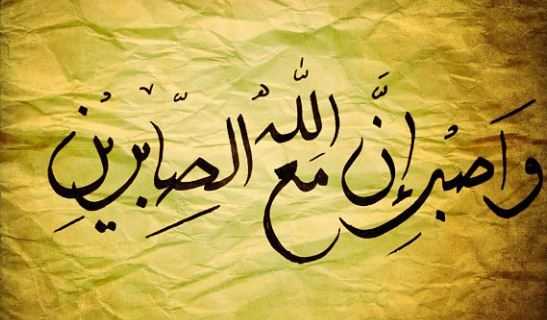 وَاصْبر إِنَّ اللّٰهُ مَع الصِّابرينِ